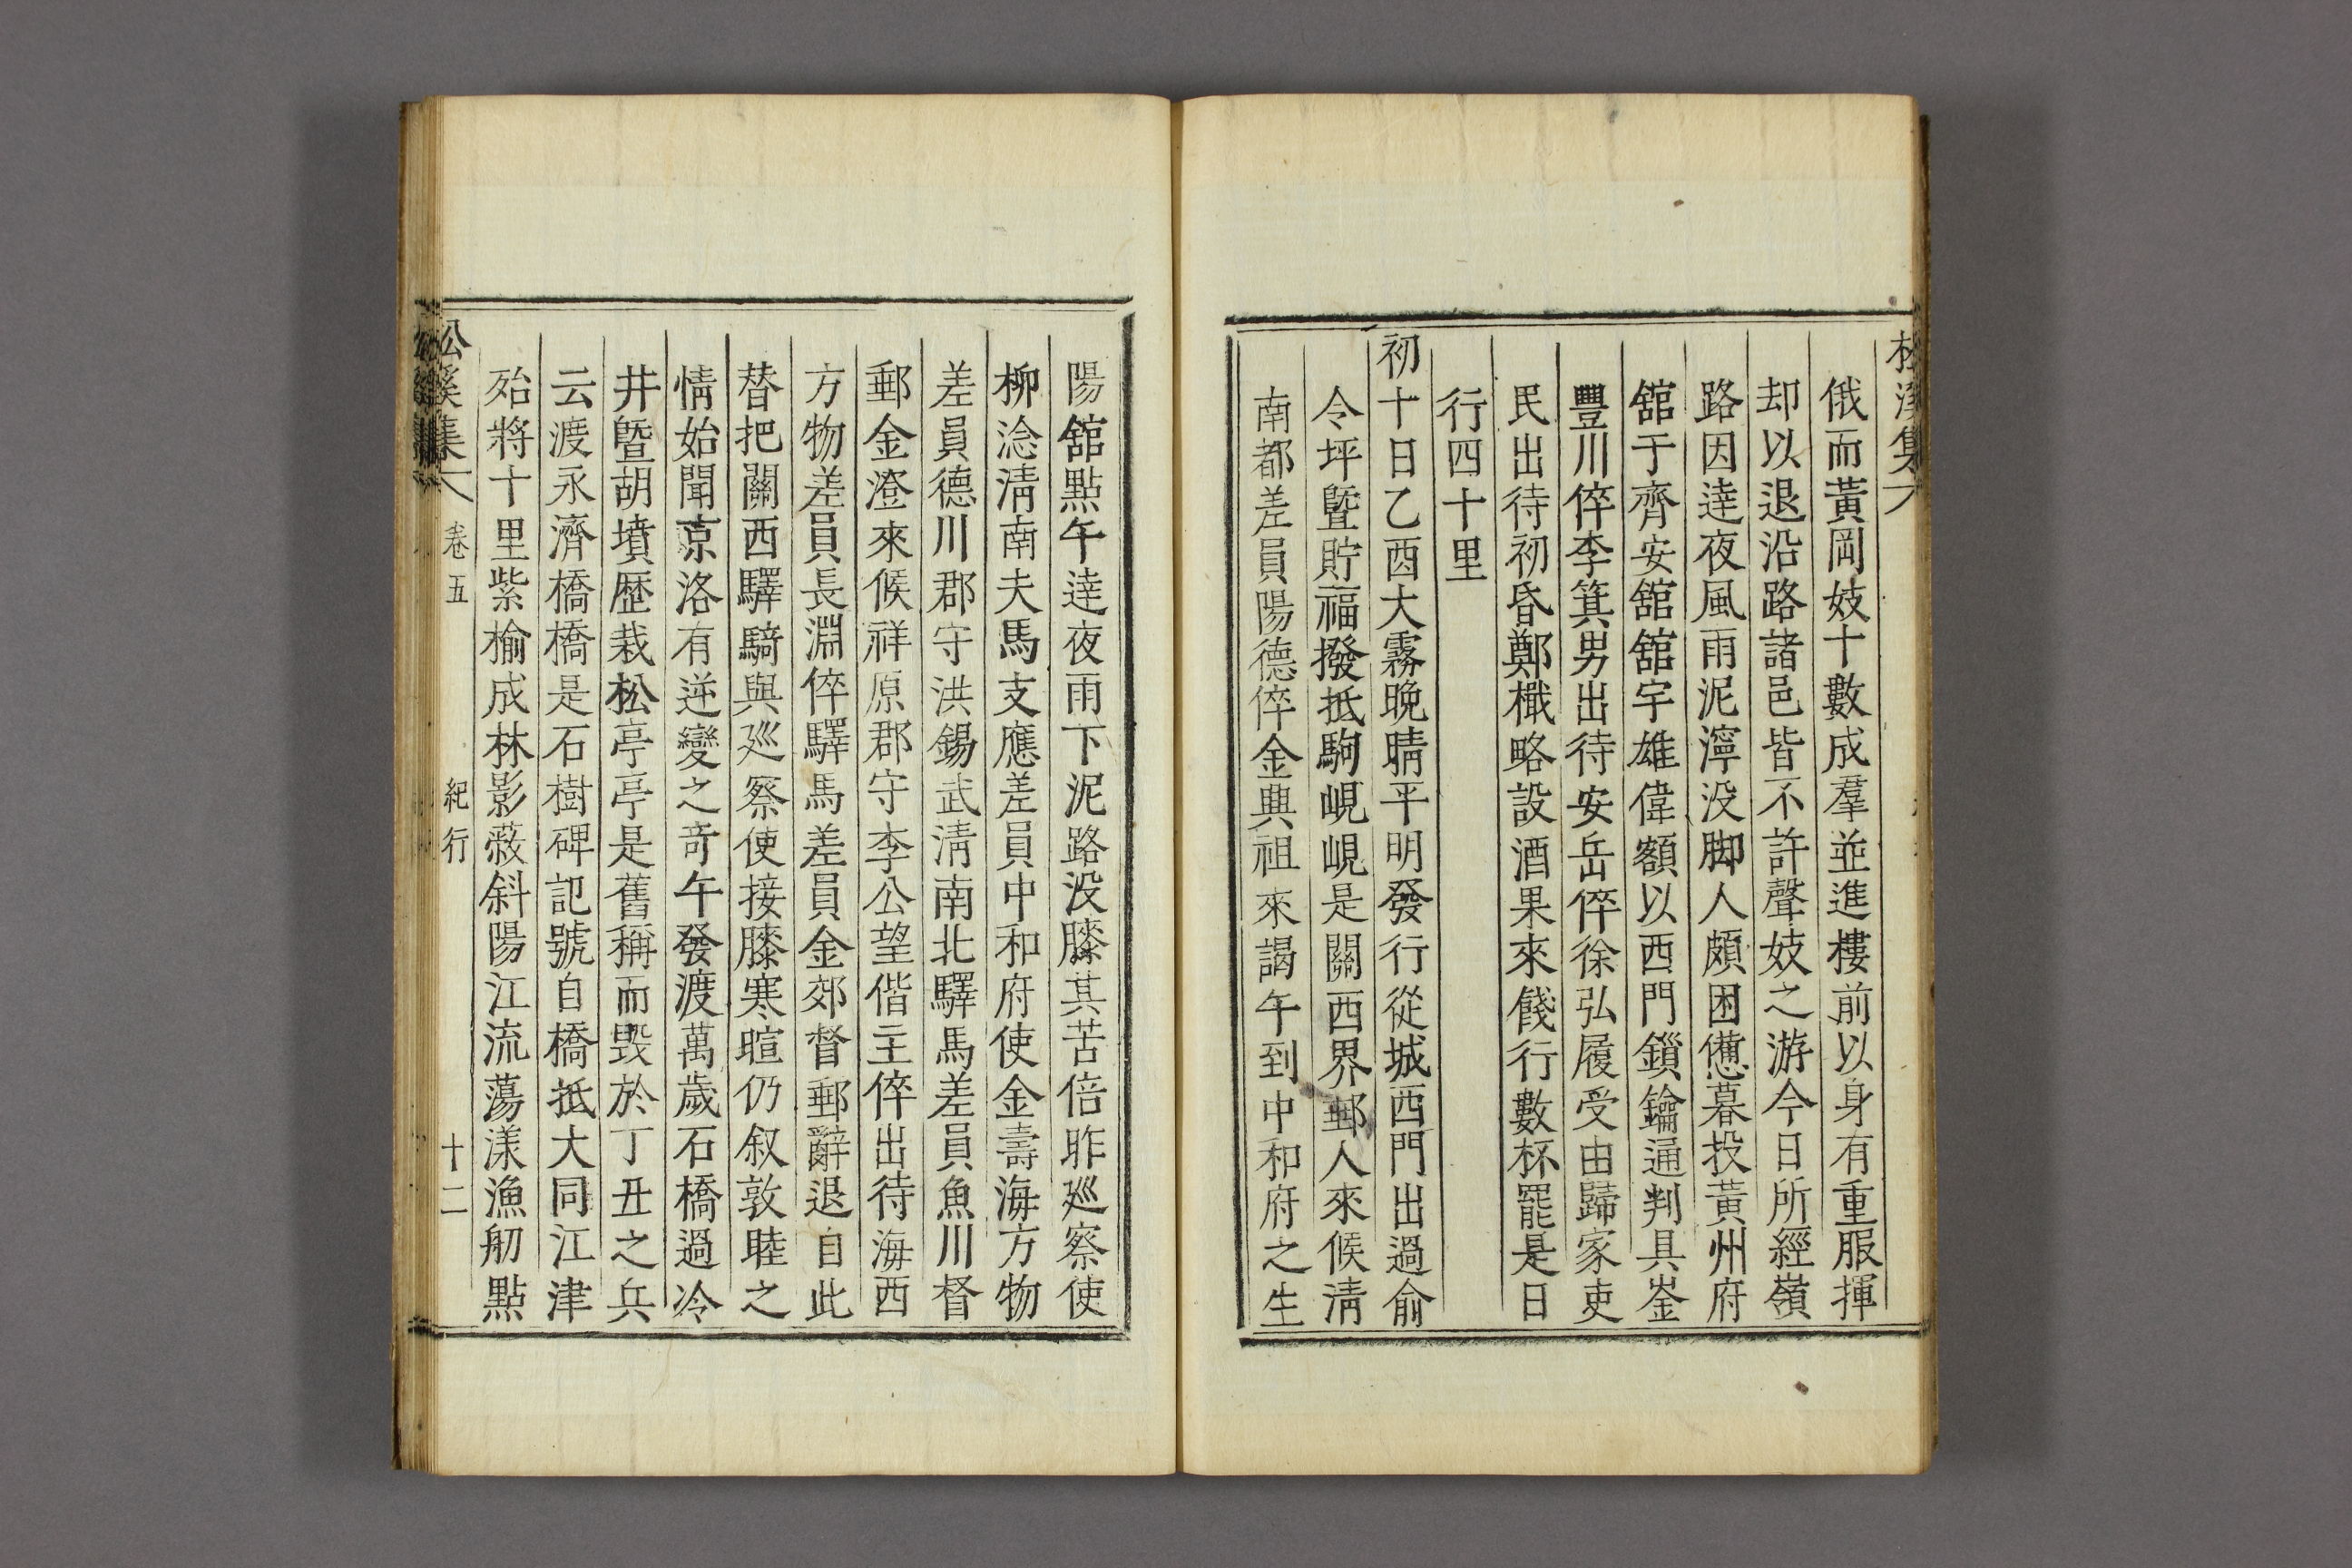 松溪集
俄而黃岡妓十數成羣並進樓前以身有重服揮
却以退沿路諸邑皆不許聲妓之游今日所經嶺
路因達夜風雨泥濘没脚人頗困憊暮投黃州府
舘于齊安舘舘宇雄偉額以西門鎖鑰通判具崟
豐川倅李箕男出待安岳倅徐弘履受由歸家吏
民出待初昏鄭檝略設酒果來餞行數杯罷是日
行四十里
初十日乙酉大霧晚晴平明發行從城西門出過俞
令坪曁貯福撥抵駒峴峴是關西界郵人來候淸
南都差員陽德倅金興祖來謁午到中和府之生
陽舘點午達夜雨下泥路没膝其苦倍昨巡察使
柳淰淸南夫馬支應差員中和府使金壽海方物
差員德川郡守洪錫武淸南北驛馬差員魚川督
郵金澄來候祥原郡守李公望偕主倅出待海西
方物差員長淵倅驛馬差員金郊督郵辭退自此
替把關西驛騎與巡察使接膝寒暄仍叙敦睦之
情始聞京洛有逆變之奇午發渡萬歲石橋過冷
井曁胡墳歷栽松亭亭是舊稱而毁於丁丑之兵
云渡永濟橋橋是石樹碑記號自橋抵大同江津
殆將十里紫榆成林影蔽斜陽江流蕩漾漁舠點
松溪集 卷五 紀行 十二